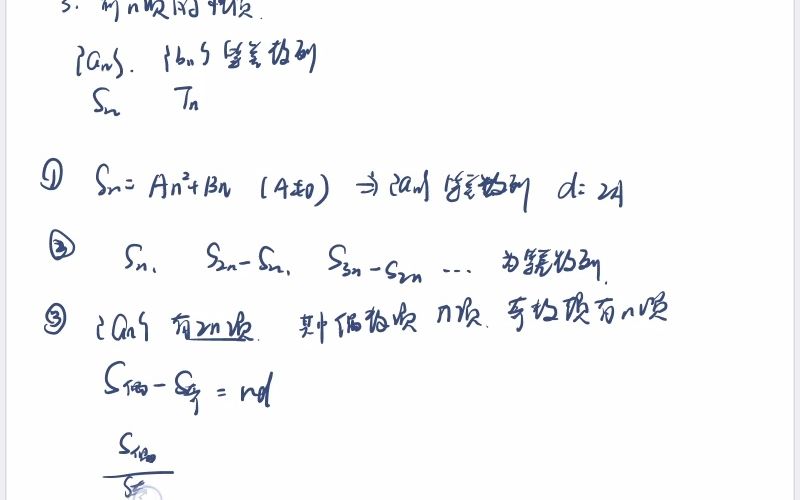 3. 前n项的性质.
{an}. {bn} 等差数列
Sn Tn
① Sn = An²+Bn (A≠0) ⇒ {an} 等差数列 d=2A
② Sn, S2n-Sn, S3n-S2n ... 为等差数列.
③ {an} 有2n项. 其中偶数项 n项. 奇数项有n项
S偶 - S奇 = nd
S偶
S奇